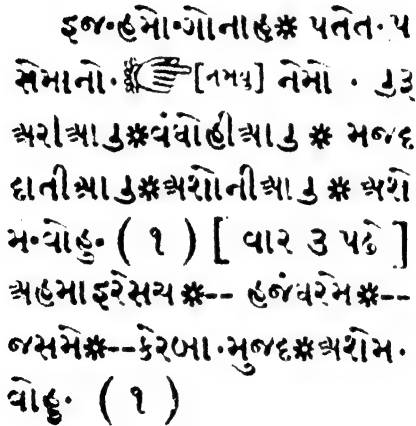 ઇજ·હમો·ગોનાહ※ પતેત·પ
સેમાનો· ☞ [નમવુ] નેમો · ડુરૂ
અરીઆડ※વંઘોહીઆડ ※ મજદ
દાતીઆડ※અશોનીઆડ ※ અશે
મ·વોહુ· ( ૧ ) [ વાર ૩ પઢે ]
અહમાઇરેસચ ※-- હજંઘરેમ※--
જસમે※--કેરબા·મુજદ※અશેમ·
વોહુ· ( ૧ )